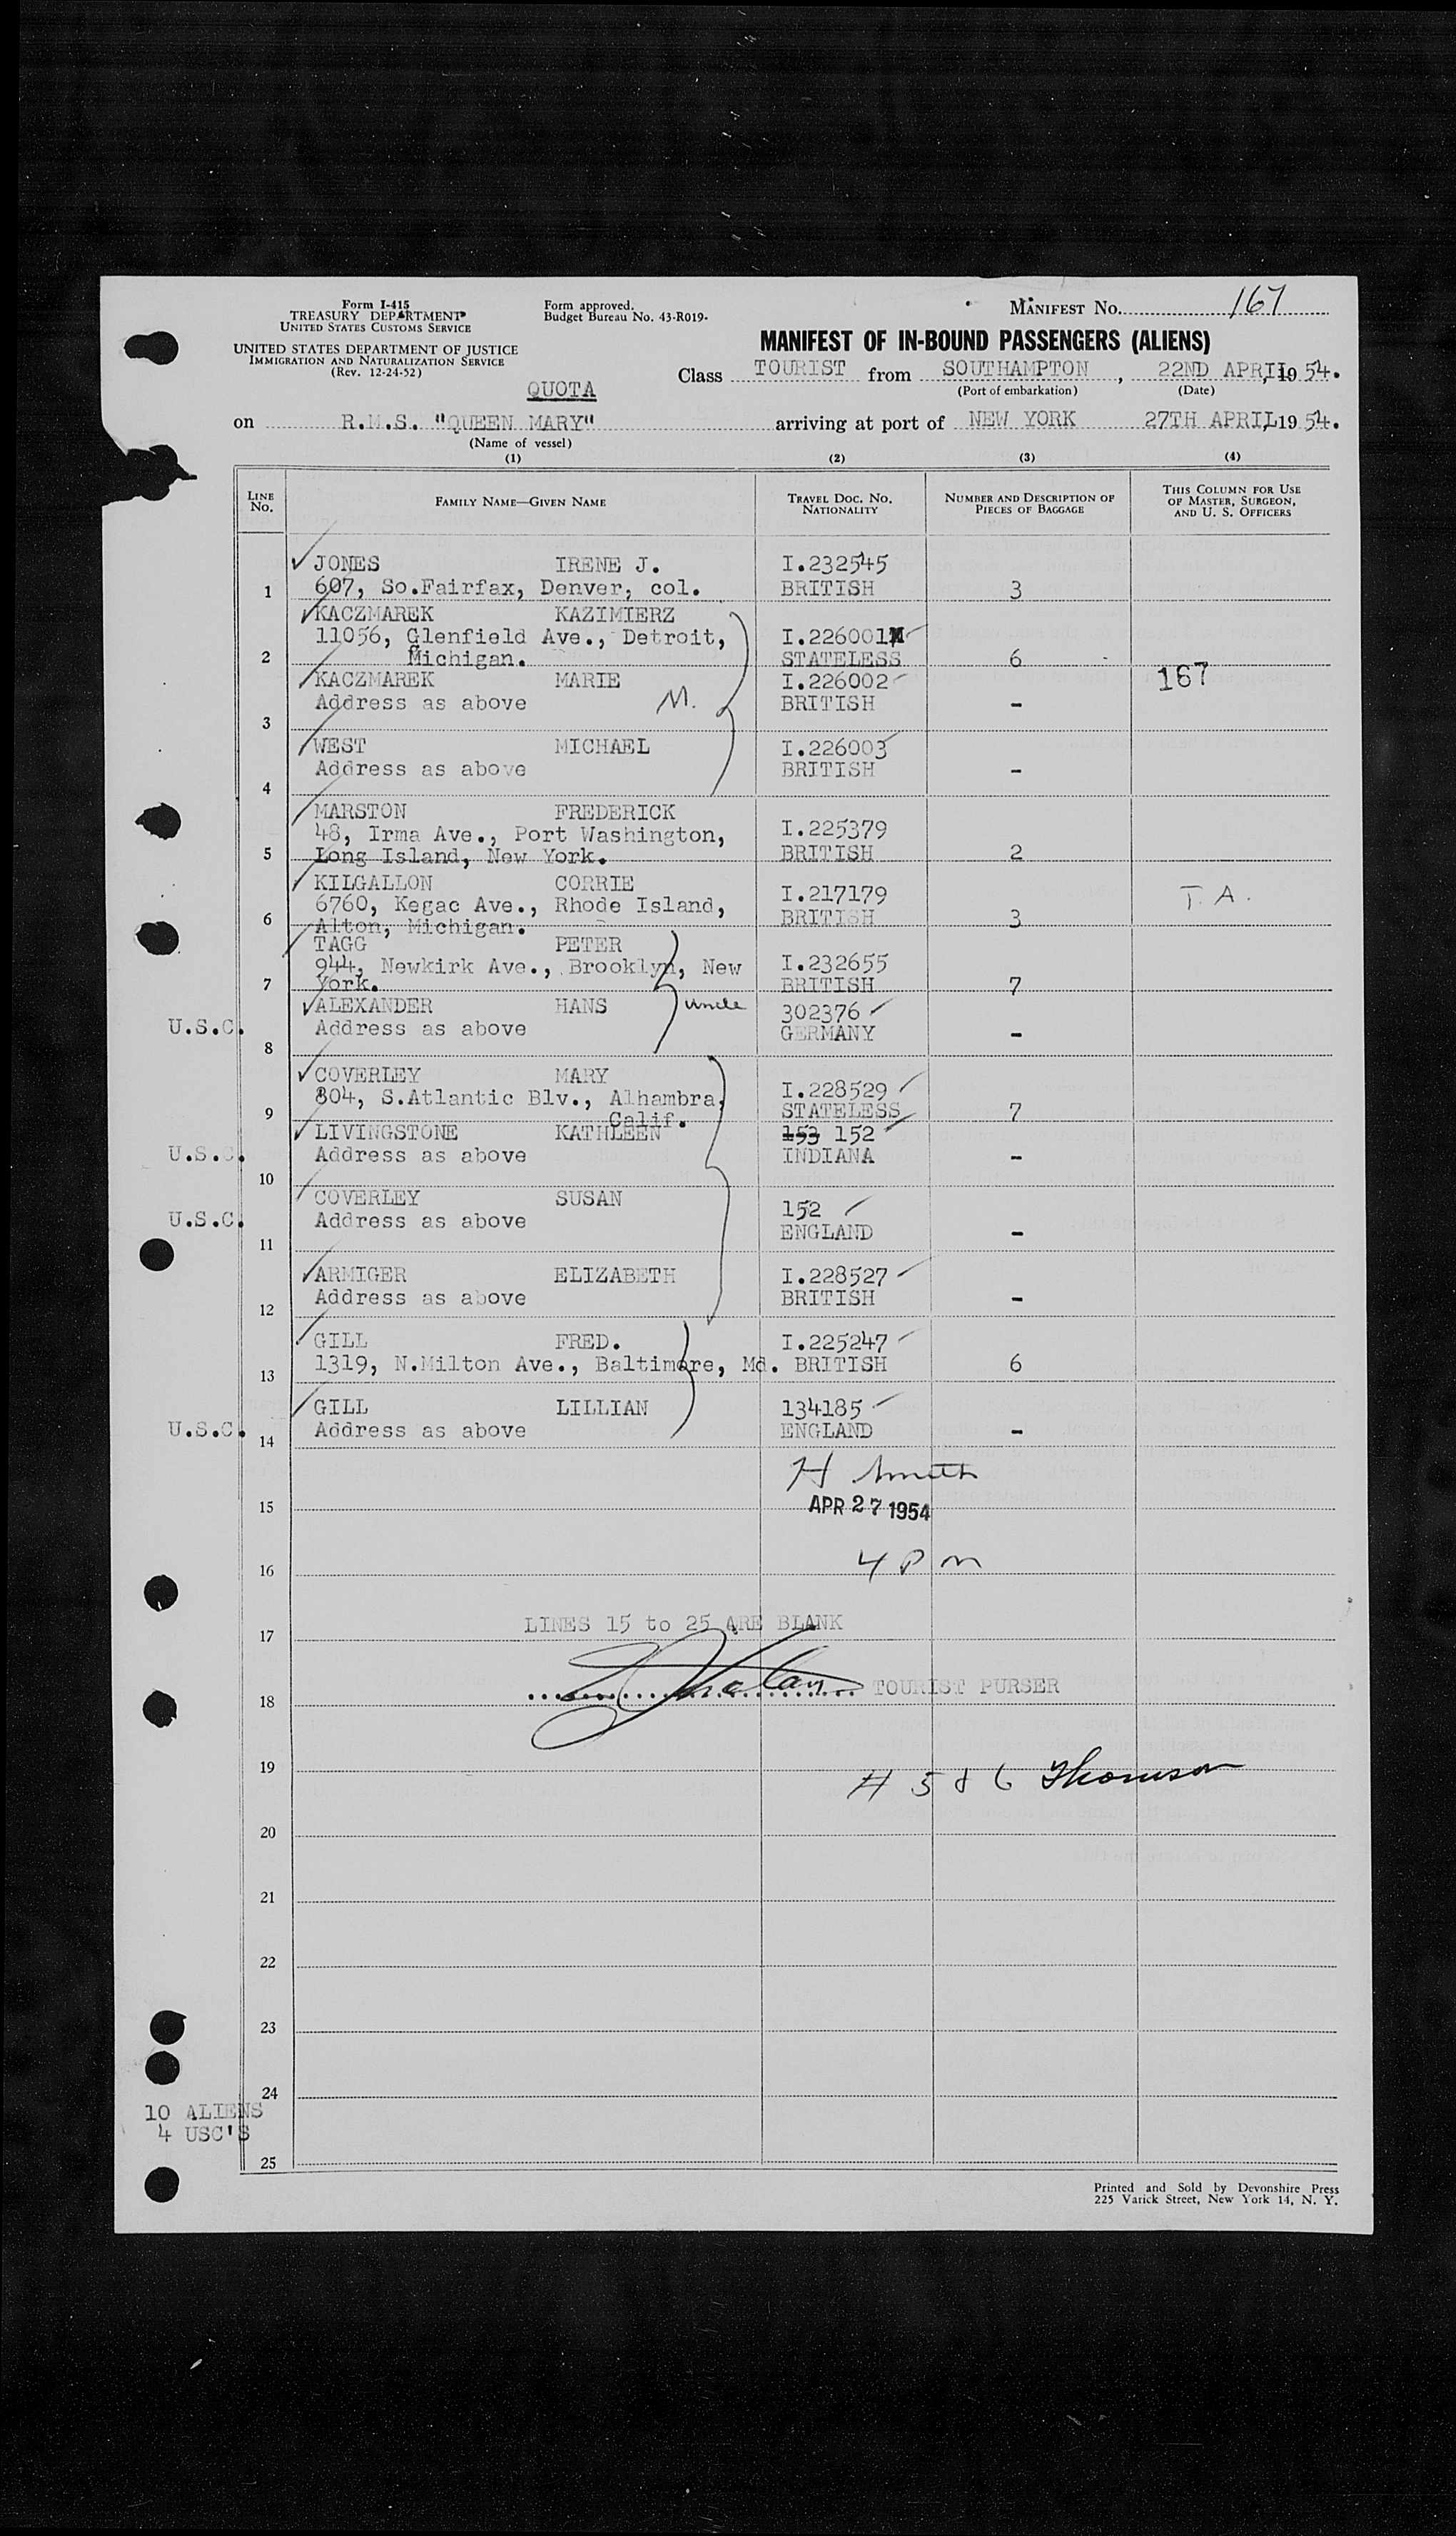 Form I-415
TREASURY DEPARTMENT
UNITED STATES CUSTOMS SERVICE
UNITED STATES DEPARTMENT OF JUSTICE
IMMIGRATION AND NATURALIZATION SERVICE
(Rev. 12-24-52)
Form approved.
Budget Bureau No. 43-R019-
MANIFEST No. 167
MANIFEST OF IN-BOUND PASSENGERS (ALIENS)
QUOTA
Class TOURIST from SOUTHAMPTON, 22ND APRIL, 19 54.
(Port of embarkation) (Date)
on R.M.S. "QUEEN MARY" arriving at port of NEW YORK 27TH APRIL, 19 54.
(Name of vessel)
(1) (2) (3) (4)
LINE No. FAMILY NAME—GIVEN NAME TRAVEL DOC. No. NATIONALITY NUMBER AND DESCRIPTION OF PIECES OF BAGGAGE THIS COLUMN FOR USE OF MASTER, SURGEON, AND U. S. OFFICERS
JONES IRENE J. I.232545
1 607, So.Fairfax, Denver, col. BRITISH 3
KACZMAREK KAZIMIERZ
11056, Glenfield Ave., Detroit, I.226001
2 Michigan. STATELESS 6
KACZMAREK MARIE I.226002 167
Address as above M. BRITISH -
3
WEST MICHAEL I.226003
Address as above BRITISH -
4
MARSTON FREDERICK
48, Irma Ave., Port Washington, I.225379
5 Long Island, New York. BRITISH 2
KILGALLON CORRIE I.217179 T. A.
6760, Kegac Ave., Rhode Island,
6 Alton, Michigan. BRITISH 3
TAGG PETER
944, Newkirk Ave., Brooklyn, New I.232655
7 York. BRITISH 7
ALEXANDER HANS uncle 302376
U.S.C. Address as above GERMANY -
8
COVERLEY MARY
804, S.Atlantic Blv., Alhambra, I.228529
9 Calif. STATELESS 7
LIVINGSTONE KATHLEEN 153 152
U.S.C. Address as above INDIANA -
10
COVERLEY SUSAN 152
U.S.C. Address as above ENGLAND -
11
ARMIGER ELIZABETH I.228527
Address as above BRITISH -
12
GILL FRED. I.225247
13 1319, N.Milton Ave., Baltimore, Md. BRITISH 6
GILL LILLIAN 134185
U.S.C. Address as above ENGLAND -
14
H Smith
15 APR 27 1954
16 4 P m
LINES 15 to 25 ARE BLANK
17
18 TOURIST PURSER
19 H 5 & 6 Thomson
20
21
22
23
24
10 ALIENS
4 USC'S
25
Printed and Sold by Devonshire Press
225 Varick Street, New York 14, N. Y.